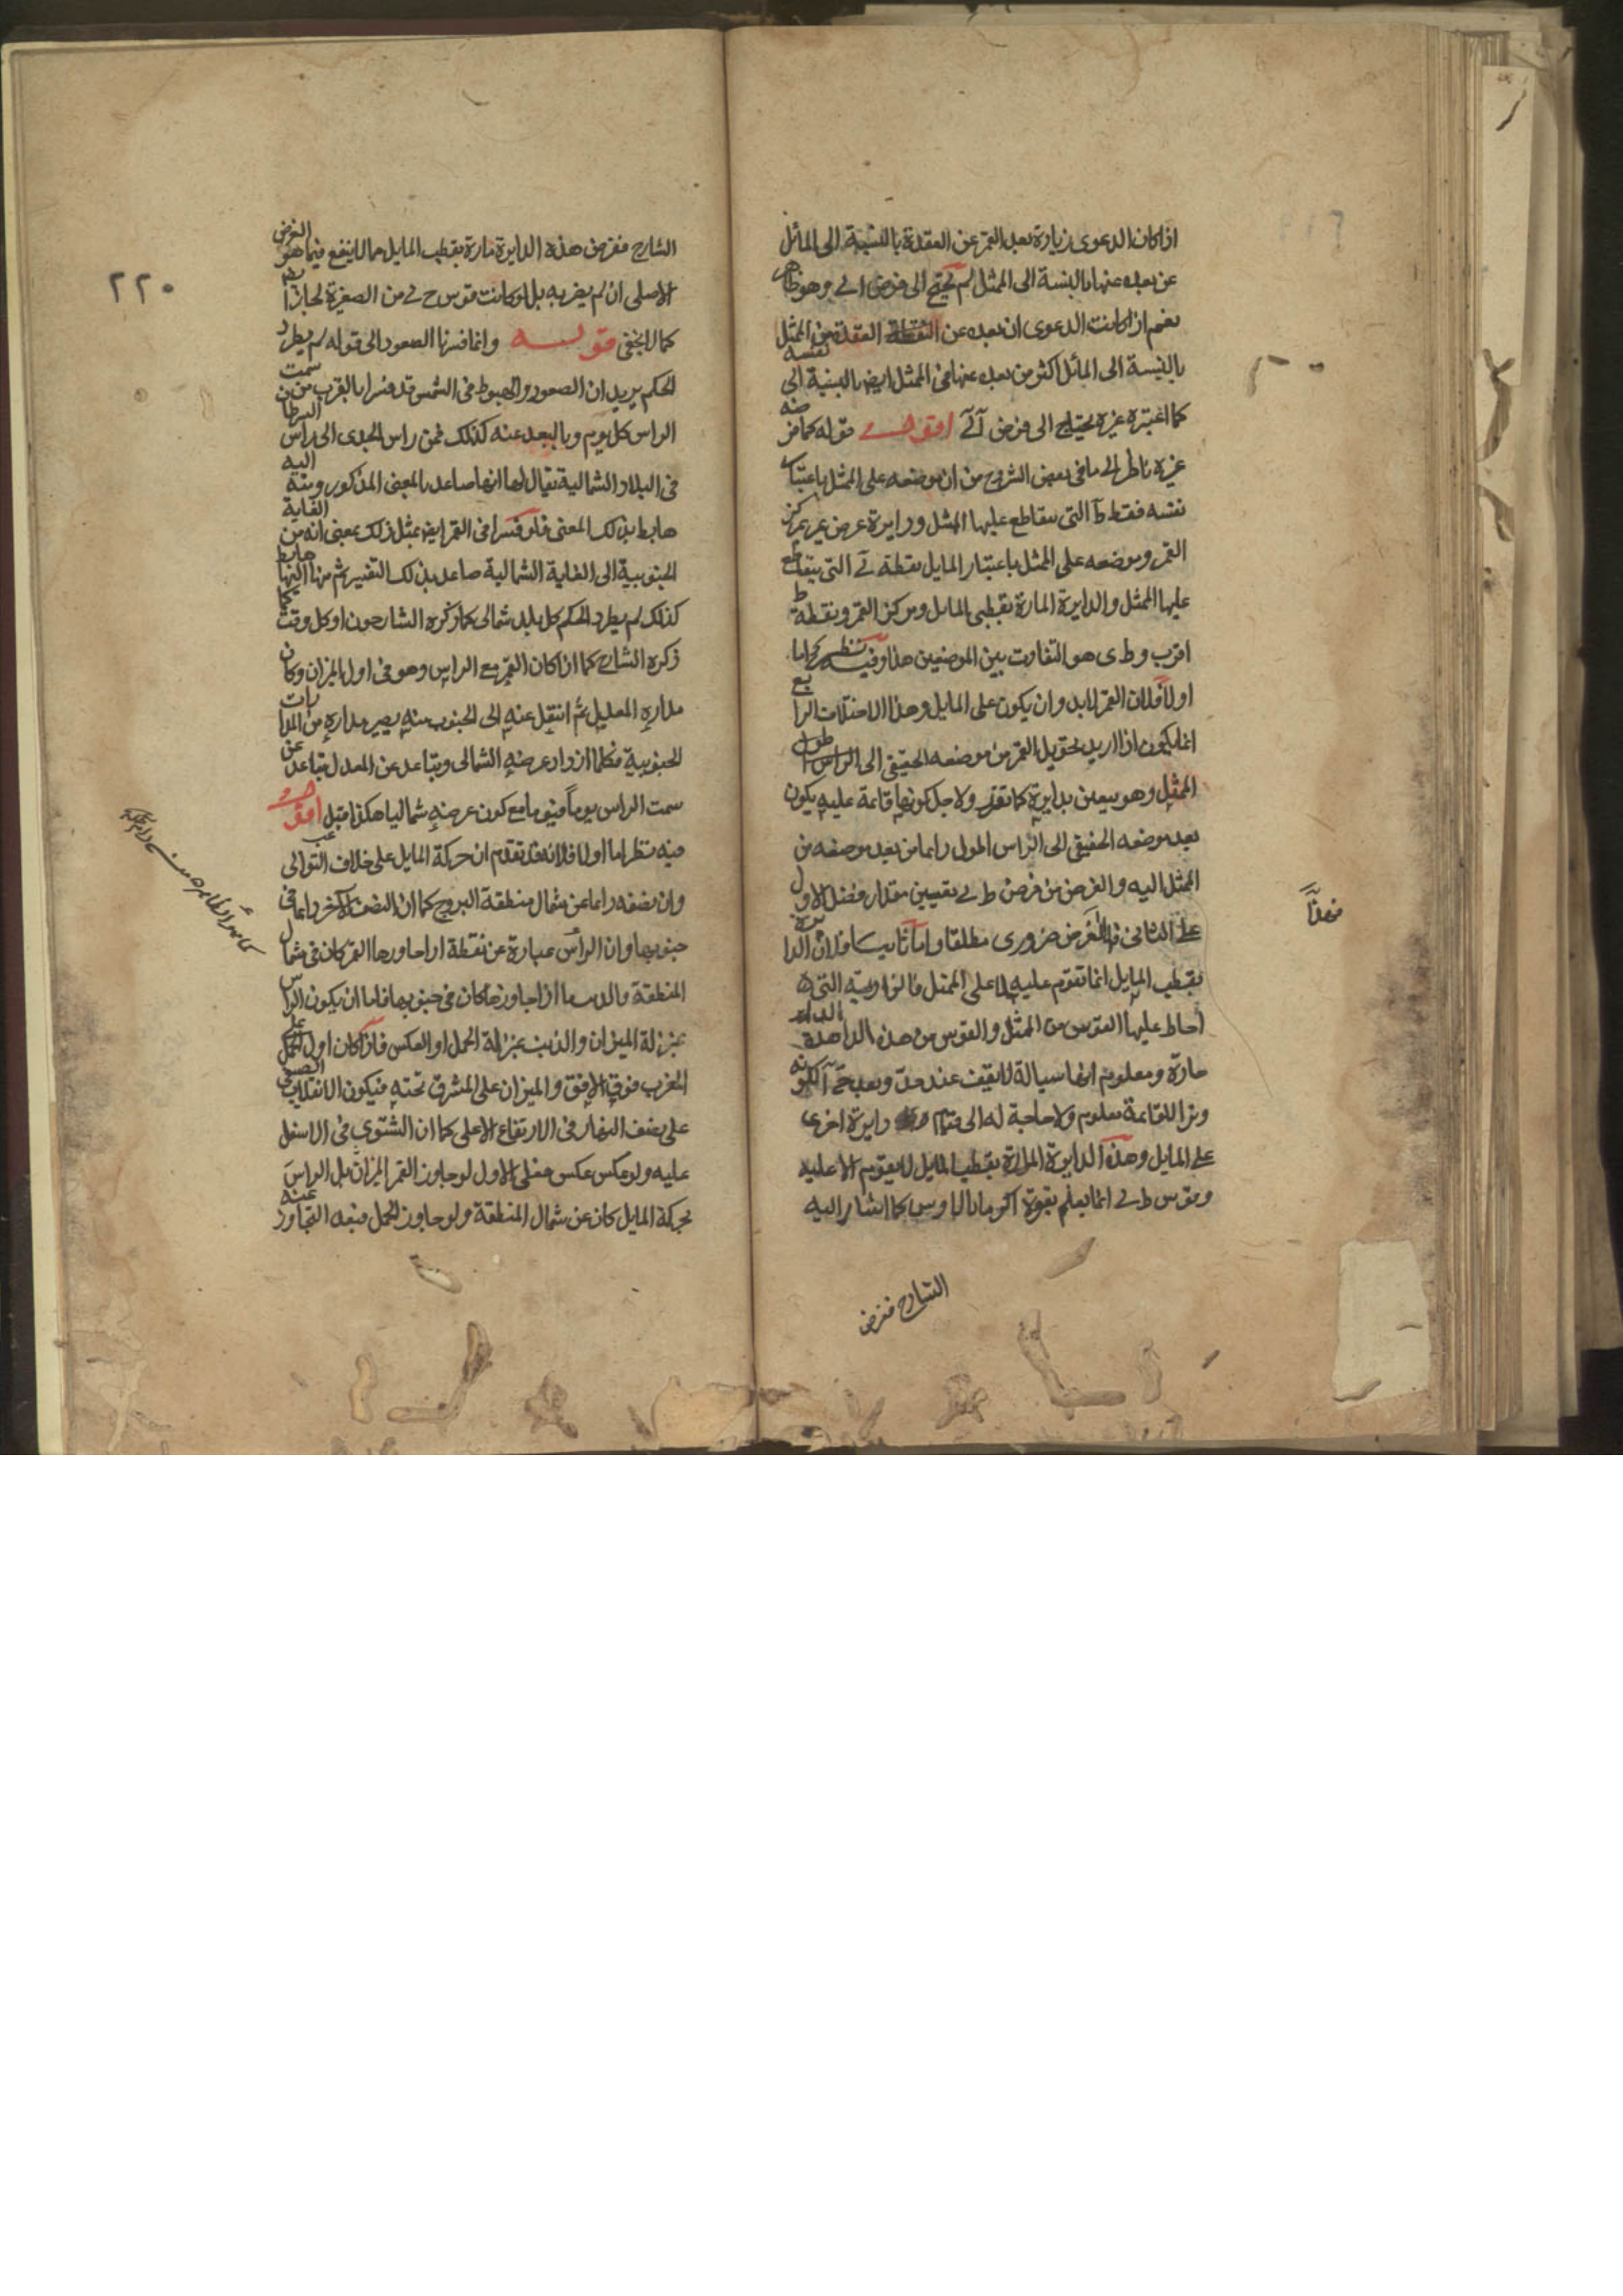 اذا كان الدعوى زيادة بعد القمر عن العقدة بالنسبة الى المائل
عن بعده عنها بالنسبة الى الممثل لم يحتج الى فرض الى وهو ظاهر
نعم اذا كانت الدعوى ان بعده عن العقدة من الممثل
بالنسبة الى المائل اكثر من بعده عنها فى الممثل ايضا بالنسبة الى نفسه
كما اعتبره غيره يحتاج الى فرض قوله كما فرضه
غيره ناظر الى ما فى بعض الشروح من ان موضعه على الممثل باعتبار
نفسه نقطة ط التى يتقاطع عليها الممثل ودايرة عرض يمر بمركز
القمر وموضعه على الممثل باعتبار المايل نقطة ى التى يتقاطع
عليها الممثل والدايرة المارة بقطبى المايل ومركز القمر ونقطة ط
اقرب و ط ى هو التفاوت بين الموضعين هذا وفيه نظر اما
اولا فلان القمر لابد وان يكون على المايل وهذا الاختلاف الرابع
انما يكون اذا اريد تحويل القمر من موضعه الحقيقى الى الراس طول
الممثل وهو يتعين بدايرة كما تقرر ولاجل كونها قائمة عليه يكون
بعد موضعه الحقيقى الى الراس اطول دايما من بعد موضعه من
الممثل اليه والغرض من فرض ط ى تعيين مقدار فضل الاول
على الثانى فالفرض ضرورى مطلقا واما ثانيا فلان الدايرة
بقطب المايل انما تقوم عليه لا على الممثل فالزاوية التى
احاط عليها القوس من الممثل والقوس من هذه الدايرة
حادة ومعلوم انها سيالة لا يقف عند حد وبعد
وتر القائمة معلوم ولا حاجة له الى قيام دايرة اخرى
على المايل وهذه الدايرة المارة بقطب المايل لا يقوم الا عليه
وقوس ط ى انما يعلم بقوة اكر مانالاوس كما اشار اليه
الشارح ففرض
فصلا
٢٢٠
الشارح ففرض هذه الدايرة مارة بقطب المايل مما لا ينفع فيما هو الغرض
الاصلى ان لم يضر به بل لو كانت قوس ح ى من الصغيرة لجاز ايضا
كما لا يخفى قوله وانما فسرنا الصعود الى قوله لم يطرد
الحكم يريد ان الصعود والهبوط فى الشمس قد فسرا بالقرب من سمت
الراس كل يوم وبالبعد عنه كذلك فمن راس الجدى الى راس السرطان
فى البلاد الشمالية يقال لها انها صاعد بالمعنى المذكور ومنه اليه
هابط بذلك المعنى فلو فسرا فى القمر ايضا بمثل ذلك بمعنى انه من الغاية
الجنوبية الى الغاية الشمالية صاعد بذلك التفسير ثم منها اليها هابط
كذلك لم يطرد الحكم كل بلد شمالى كما ذكره الشارحون او كل وقت كما
ذكره الشارح كما اذا كان القمر مع الراس وهو فى اول الميزان وكان
مداره المعدل ثم انتقل عنه الى الجنوب منه يصير مداره من المدارات
الجنوبية فكلما ازداد عرضه الشمالى ويتباعد عن المعدل تباعد عن
سمت الراس يوما فيوما مع كون عرضه شماليا هكذا قيل اقول
فيه نظر اما اولا فلانه قد تقدم ان حركة المايل على خلاف التوالى
وان نصفه دايما عن شمال منطقة البروج كما ان النصف الآخر دايما فى
جنوبها وان الراس عبارة عن نقطة اذا جاورها القمر كان فى شمال
المنطقة والذنب ما اذا جاوزها كان فى جنوبها فاما ان يكون الراس
بمنزلة الميزان والذنب بمنزلة الحمل او العكس فاذا كان اول الحمل على
المغرب فوق الافق والميزان على المشرق تحته فيكون الانقلاب الصيفى
على نصف النهار فى الارتفاع الاعلى كما ان الشتوى فى الاسفل
عليه ولو عكس عكس فعلى الاول لو جاوز القمر الميزان بل الراس
بحركة المايل كان عن شمال المنطقة ولو جاوز الحمل فبعد التجاوز عنه